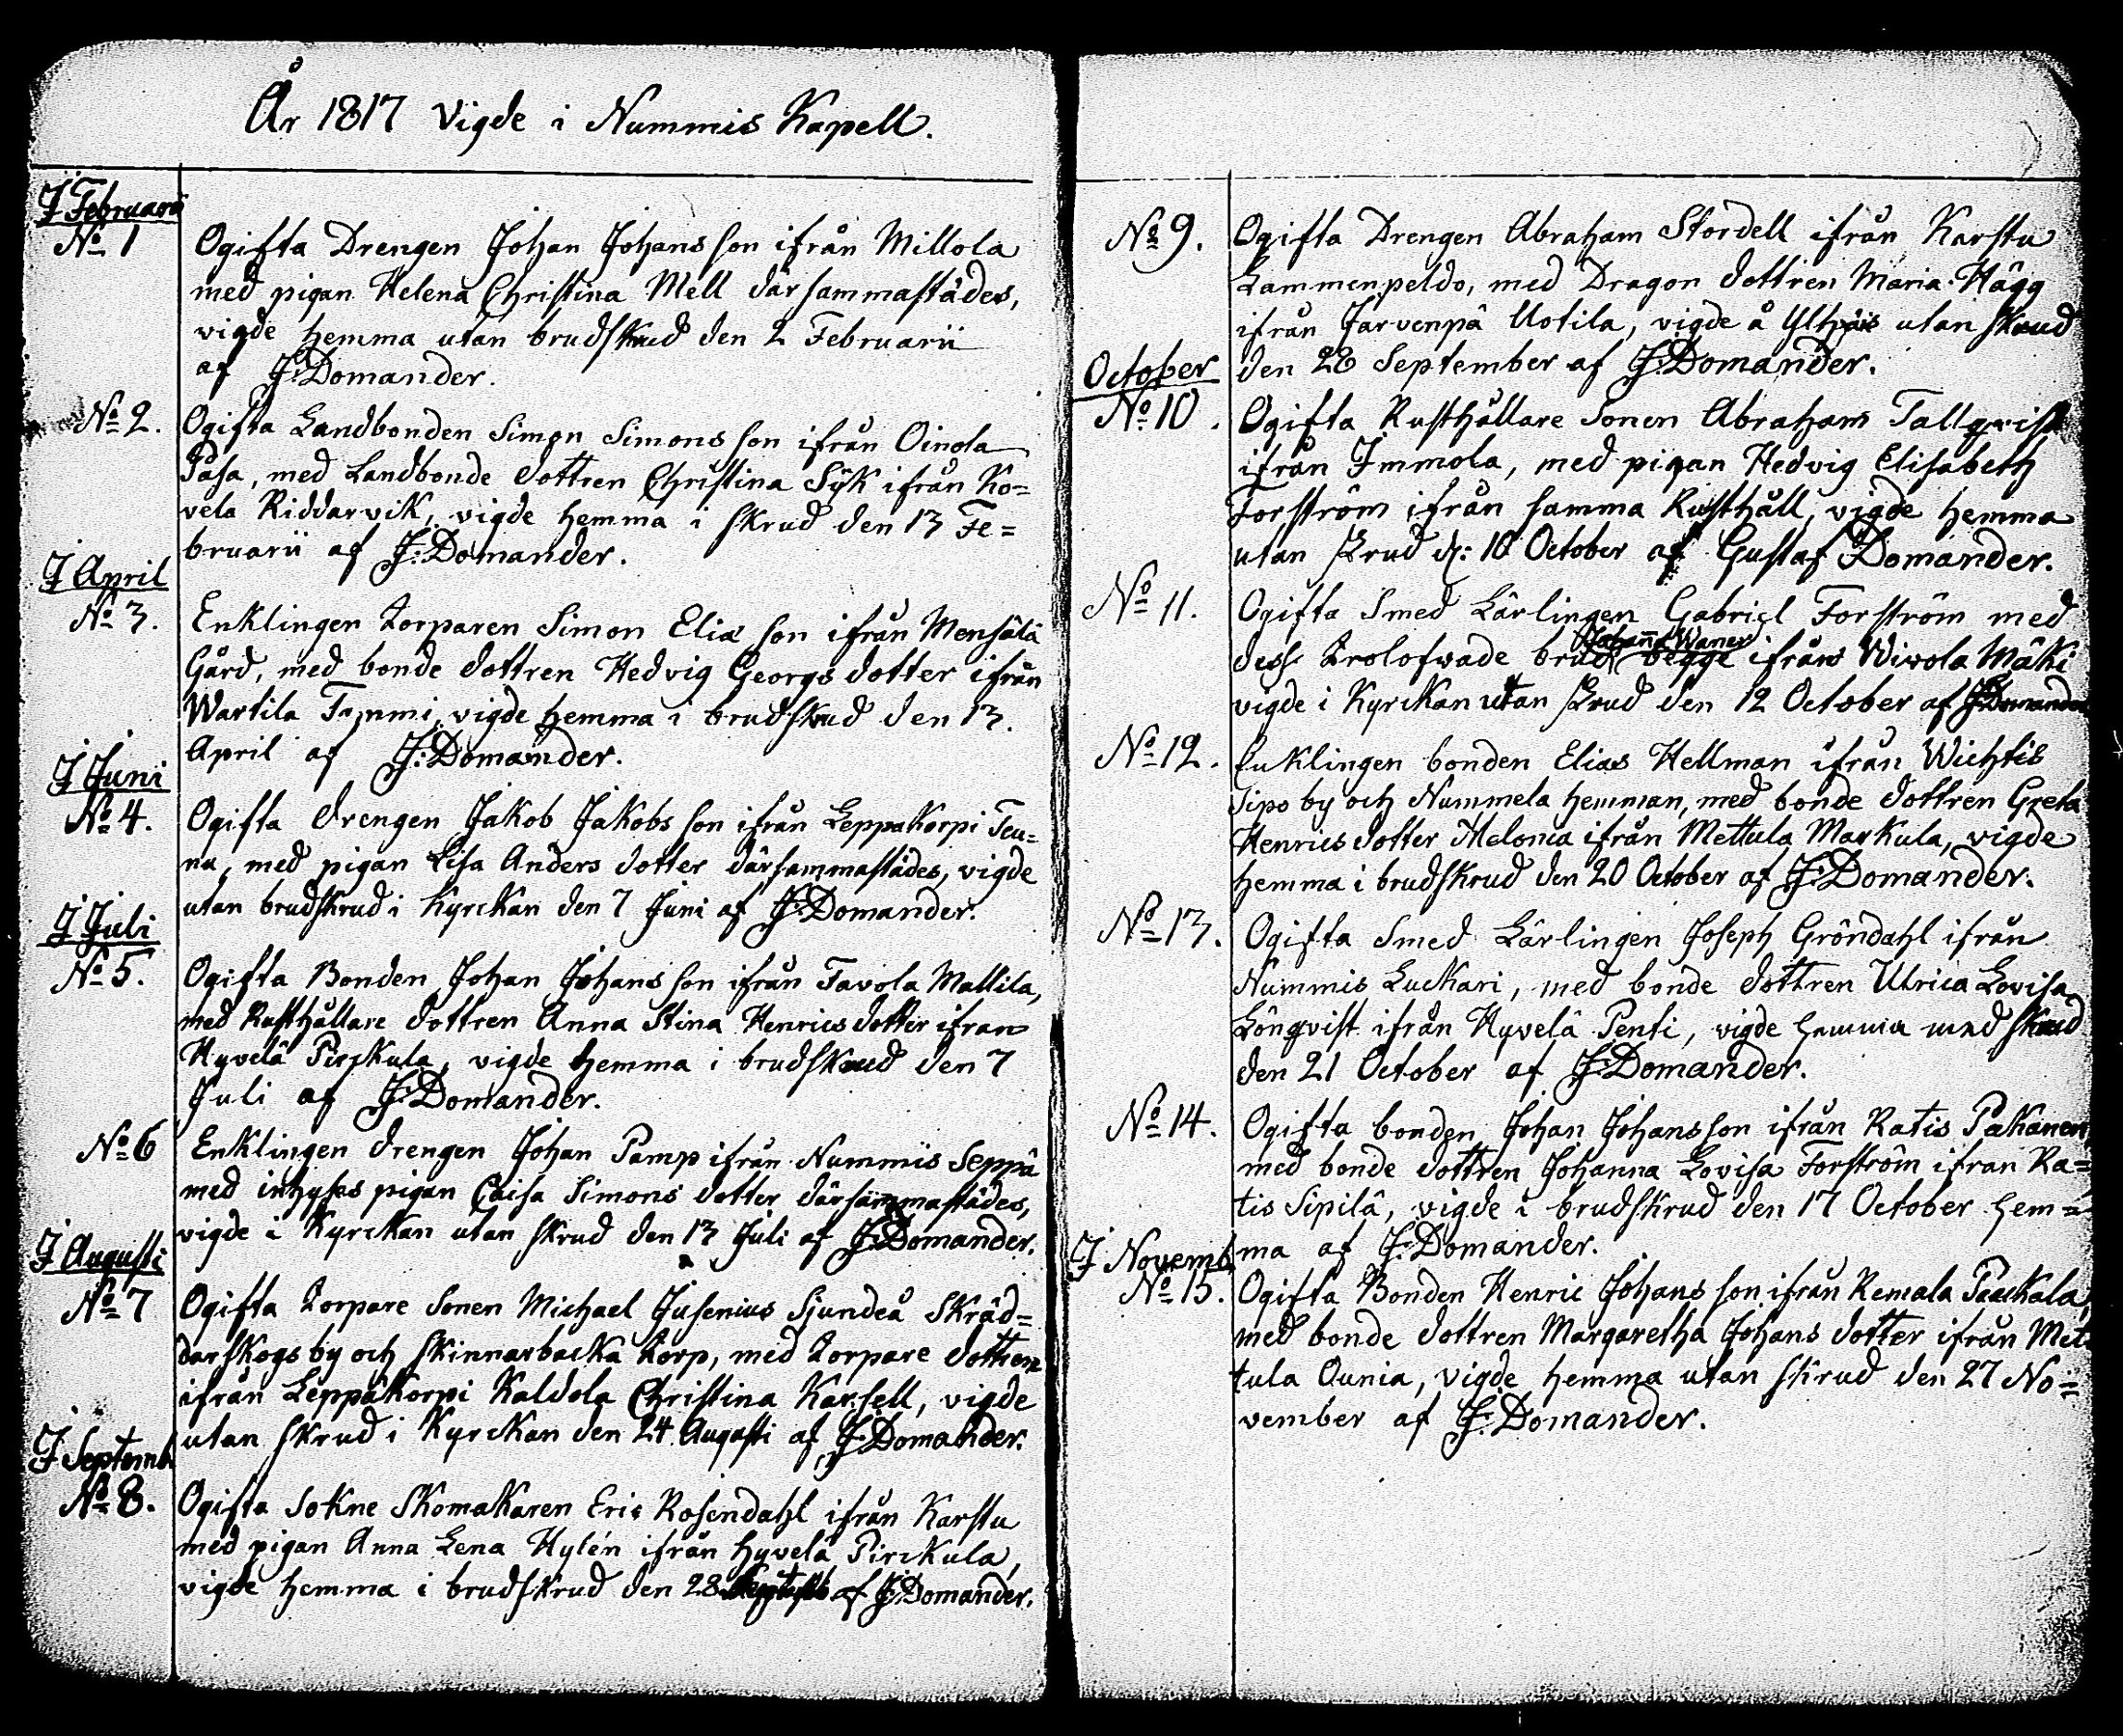 År 1817 Vigde i Nummis Kapell.
J Februarii
No 1 Ogifta Drengen Johan Johansson ifrån Millola
med pigan Helena Christina Mell därsammastädes,
vigde hemma utan brudskrud den 2 Februarii
af J: Domander.
No 2. Ogifta Landbonden Simon Simonsson ifrån Oinola
Pasa, med Landbonde dottren Christina Sÿk ifrån Ko=
vela Riddarvik, vigde hemma i skrud den 13 Fe=
bruarii af J: Domander.
J April
No 3. Enklingen Torparen Simon Elia son ifrån Mensälä
Gård, med bonde dottren Hedvig Georgs dotter ifrån
Wartila Tammi, vigde hemma i brudskrud den 13.
April af J: Domander.
J Juni
No 4. Ogifta drengen Jakob Jakobsson ifrån Leppäkorpi Teu=
nu, med pigan Lisa Anders dotter därsammastädes, vigde
utan brudskrud i Kyrckan den 7 Juni af J: Domander.
J Juli
No 5. Ogifta Bonden Johan Johansson ifrån Tavola Mattila,
med Rusthållare dottren Anna Stina Henrics dotter ifran
Hyvelä Pirckula, vigde hemma i brudskrud den 7
Juli af J: Domander.
No 6 Enklingen drengen Johan Pamp ifrån Nummis Seppä
med inhyses pigan Caisa Simons dotter därsammastädes,
vigde i Kyrckan utan skrud den 13 Juli af J: Domander.
J Augusti
No 7 Ogifta Torpare Sonen Michael Jusenius Sjundeå Skräd=
darskogs by och skinnarbacka torp, med Torpare dottren
ifrån Leppäkorpi Kaldola Christina Karsell, vigde
utan skrud i Kyrckan den 24 Augusti af J: Domander.
J Septemb.
No 8. Ogifta Sokne Skomakaren Eric Rosendahl ifrån Karstu
med pigan Anna Lena Hylén ifrån Hyvelä Pirckula,
vigde hemma i brudskrud den 28 af J: Domander.
No 9. Ogifta Drengen Abraham Stordell ifrån Karstu
Lammenpeldo, med Dragon dottren Maria Hägg
ifrån Jarvenpä Uotila, vigde å utan skrud
den 28 September af J: Domander.
October
No 10. Ogifta Rusthållare Sonen Abraham Tallqvist
ifrån Immola, med pigan Hedvig Elisabeth
Forsström ifrån samma Rusthåll, vigde hemma
utan skrud d: 10 October af Gustaf Domander.
No 11. Ogifta Smed Lärlingen Gabriel Forsström med
Johanna
dess Trolofwade brud begge ifrån Wivola Mäki
vigde i Kyrckan utan skrud den 12 October af J: Domander
No 12. Enklingen bonden Elias Hellman ifrån Wichtis
Sipo by och Nummela hemman, med bonde dottren Greta
Henrics dotter Melonia ifrån Mettula Markula, vigde
hemma i brudskrud den 20 October af J: Domander.
No 13. Ogifta Smed Lärlingen Joseph Gröndahl ifrån
Nummis Luckari, med bonde dottren Ulrica Lovisa
Lönqvist ifrån Hyvelä Penti, vigde hemma med skrud
den 21 October af J: Domander.
No 14. Ogifta bonden Johan Johansson ifrån Ratis Pakanen
med bonde dottren Johanna Lovisa Forsström ifran Ra=
tis Sipilä, vigde i brudskrud den 17 October hem=
ma af J: Domander.
J Novemb.
No 15. Ogifta Bonden Henric Johansson ifrån Remala Paackala
med bonde dottren Margaretha Johans dotter ifrån Met
tula Ounia, vigde hemma utan skrud den 27 No=
vember af J: Domander.